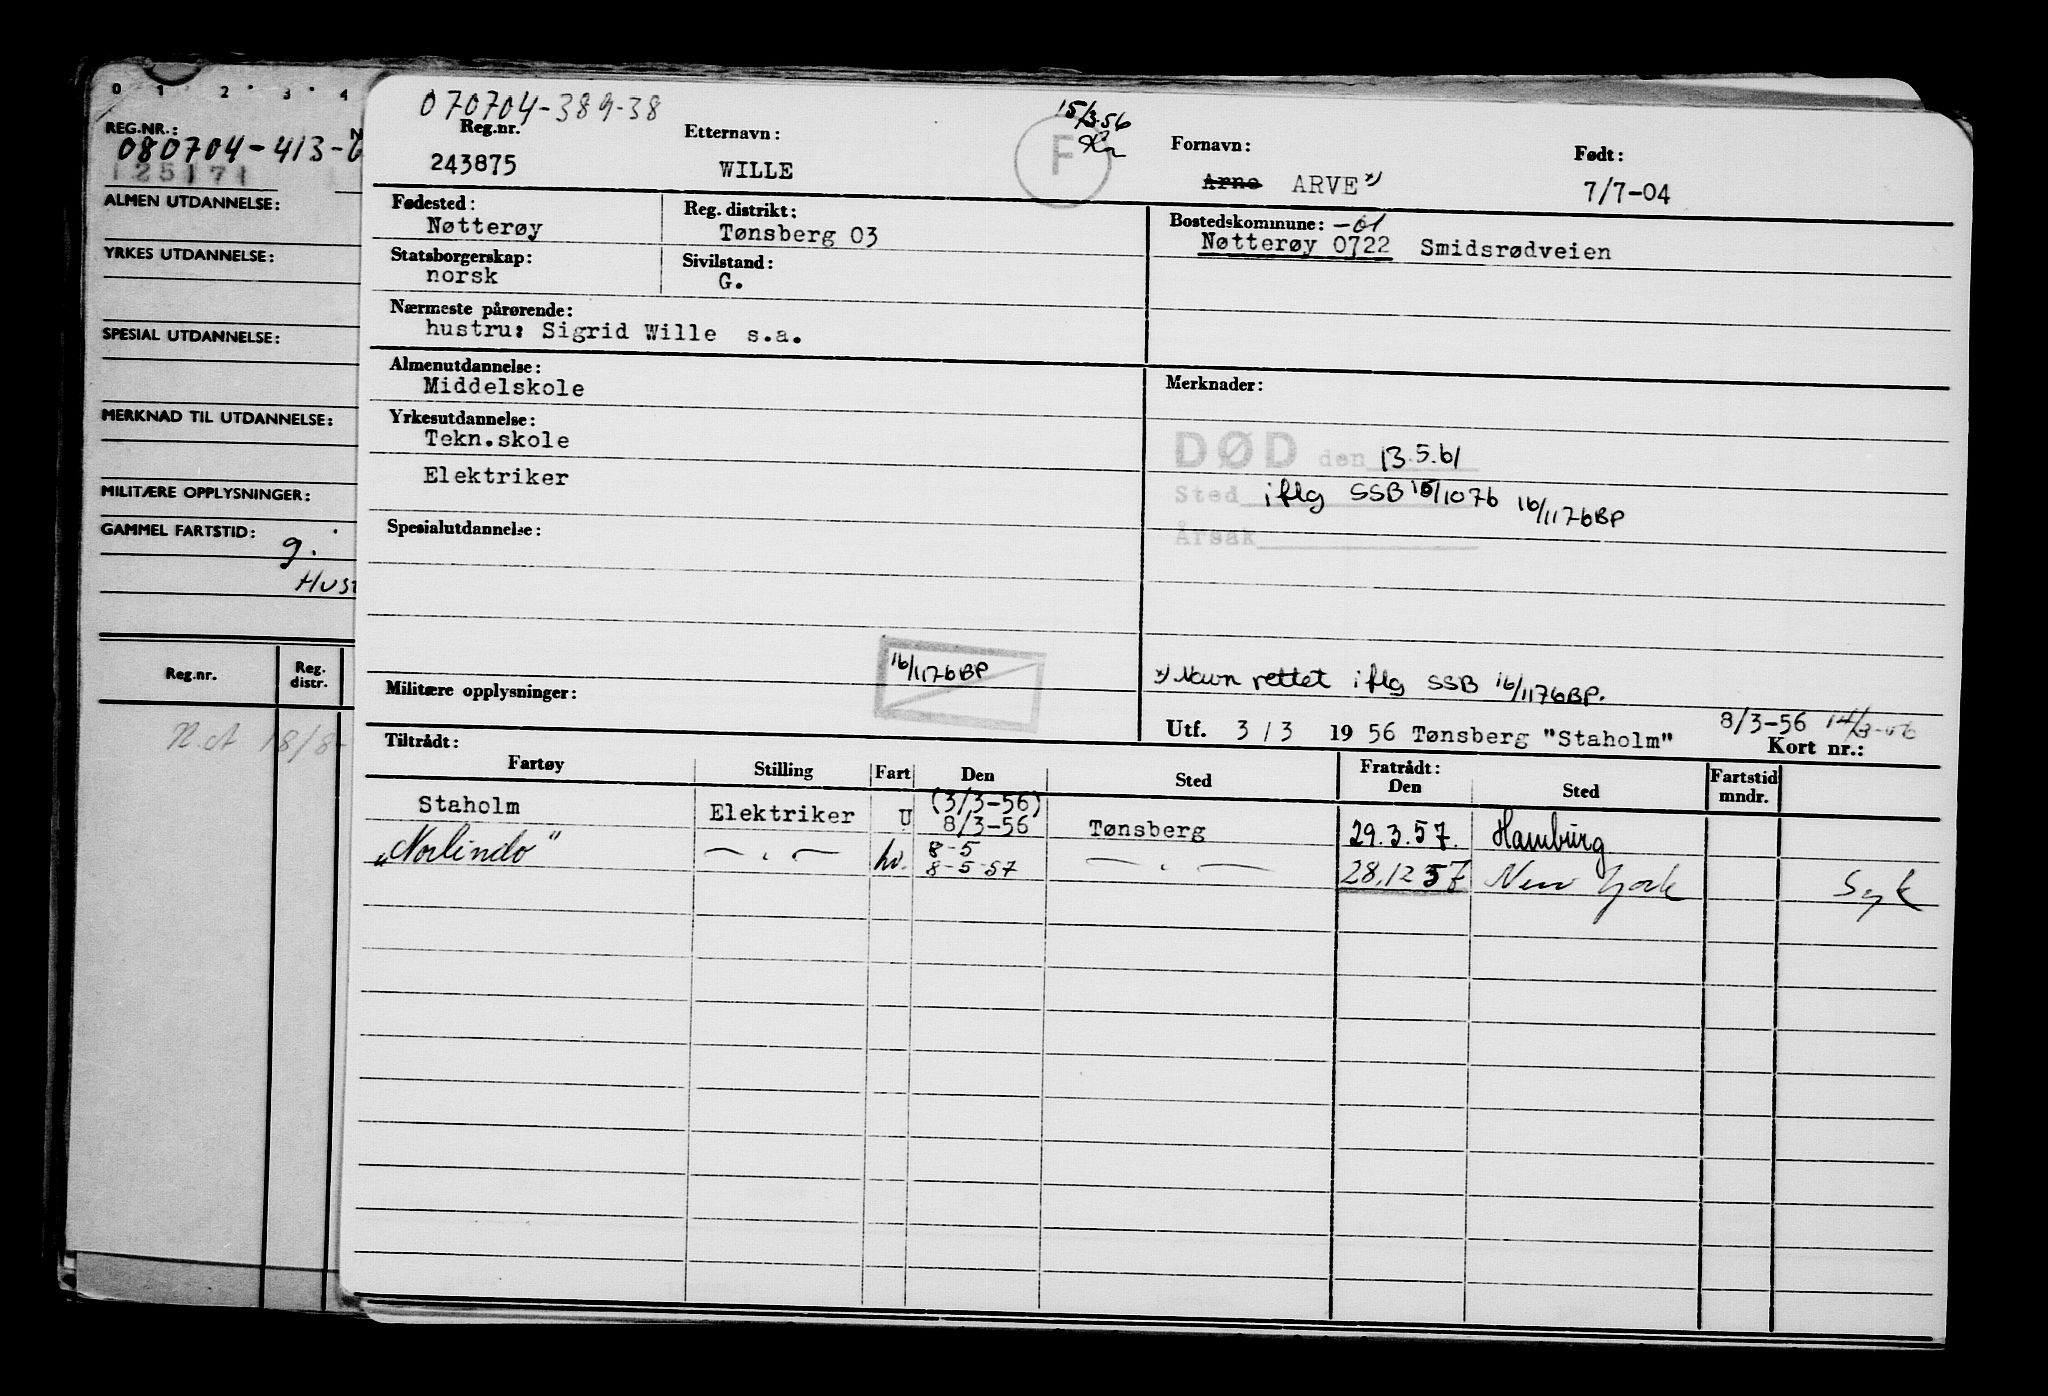 0 1 2 3 4
REG.NR.: N
080704-413-
125171
ALMEN UTDANNELSE:
YRKES UTDANNELSE:
SPESIAL UTDANNELSE:
MERKNAD TIL UTDANNELSE:
MILITÆRE OPPLYSNINGER:
GAMMEL FARTSTID:
g.
Reg.nr. Reg. distr.
070704-389-38
15/3.56
Reg.nr. Etternavn: F Fornavn: Født:
243875 WILLE Arne ARVE x) 7/7-04
Fødested: Reg. distrikt: Bostedskommune: -01
Nøtterøy Tønsberg 03 Nøtterøy 0722 Smidsrødveien
Statsborgerskap: Sivilstand:
norsk G.
Nærmeste pårørende:
hustru: Sigrid Wille s.a.
Almenutdannelse: Merknader:
Middelskole
Yrkesutdannelse:
Tekn.skole
DØD den 13.5.61
Elektriker
Sted iflg SSB 15/1076 16/1176BP
Spesialutdannelse:
Årsak
16/1176BP
x) Navn rettet iflg SSB 16/1176BP.
Militære opplysninger:
Utf. 3/3 1956 Tønsberg "Staholm" 8/3-56 14/3-56
Kort nr.:
Tiltrådt: Fratrådt:
Fartøy Stilling Fart Den Sted Den Sted Fartstid mndr.
Staholm Elektriker U (3/3-56) 8/3-56 Tønsberg 29.3.57. Hamburg
"Norlindo" — " — hv. 8-5 8-5-57 — " — 28.12 57 New York Syk